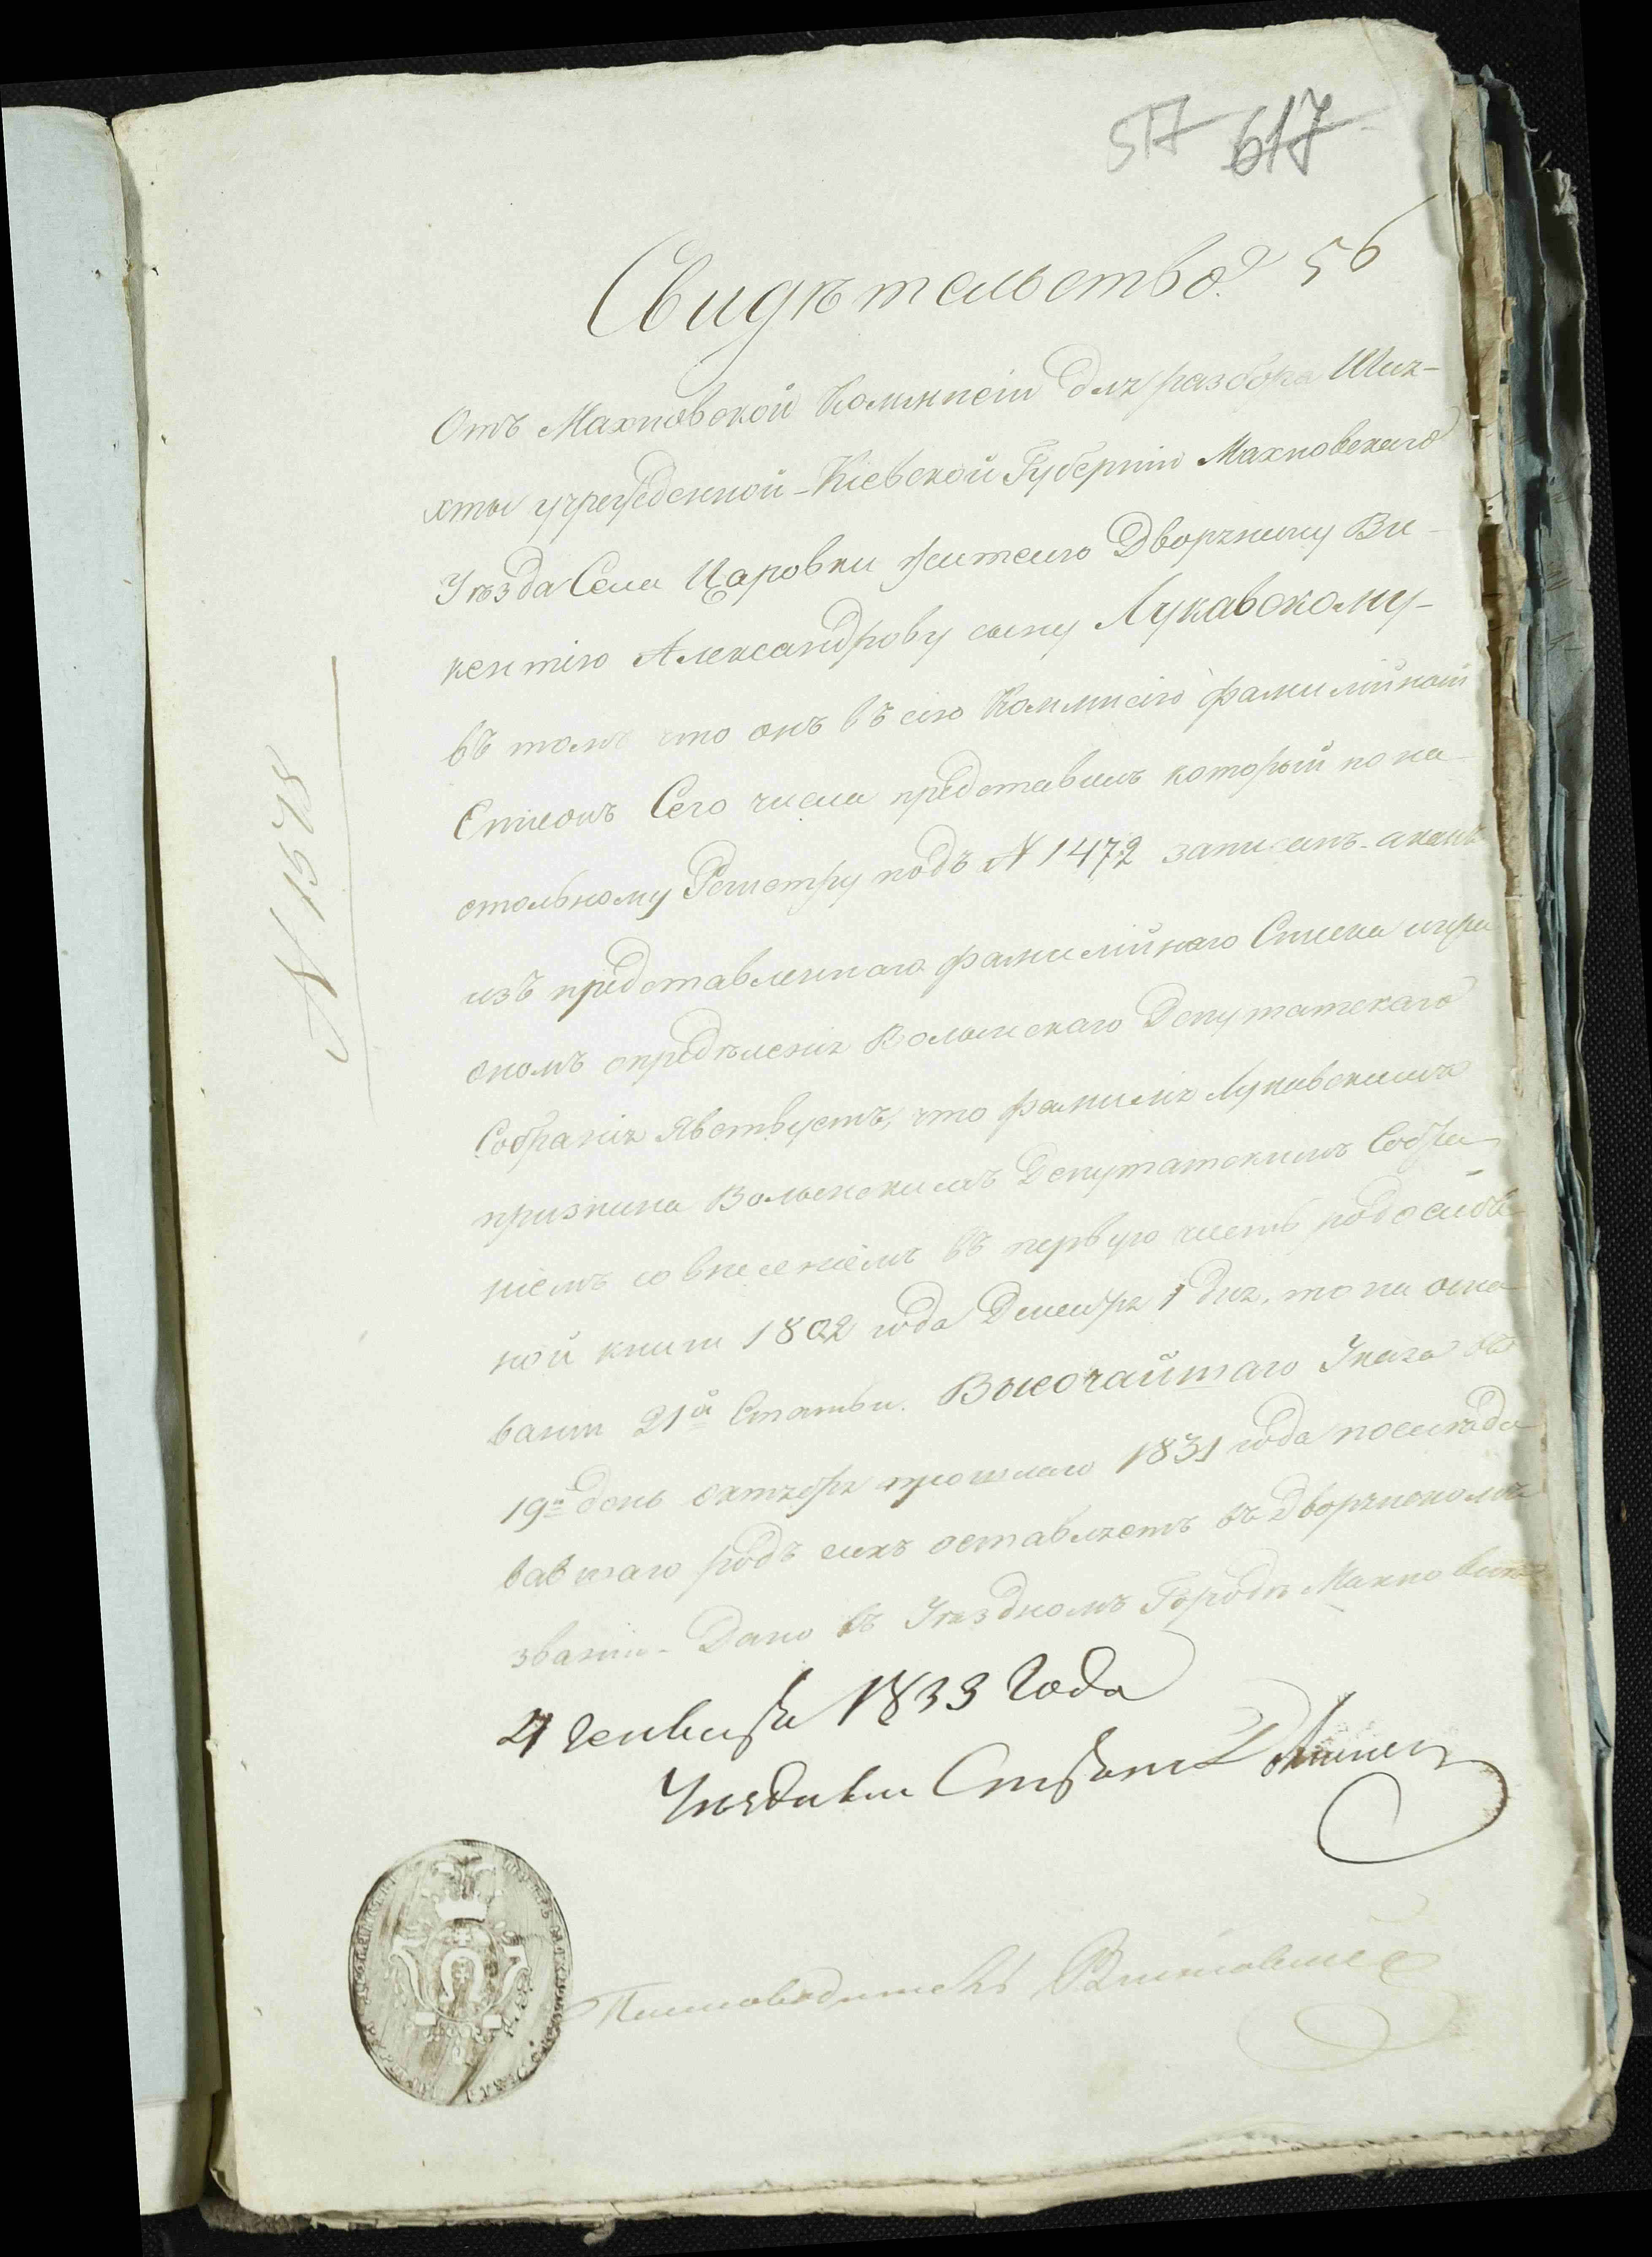 517 617
Свидѣтельство. 56
Отъ Махновской Коммисіи для разбора Шля-
хты учрежденной - Кіевской Губерніи Махновскаго
Уѣзда Села Царовки жителю Дворянину Ви-
кентію Александрову сыну Лукавскому -
въ томъ что онъ въ сію Коммисію фамилійный
Списокъ Сего числа представилъ который по на-
стольному Регистру подъ № 1472 записанъ. а какъ
изъ представленнаго фамилійнаго Списка и при
ономъ опредѣленія Волынскаго Депутатскаго
Собранія Явствуетъ, что фамилія Лукавскихъ
признана Волынскимъ Депутатскимъ Собра-
ніемъ со внесеніемъ въ первую часть родослов-
ной книги 1802 года Декабря 1 дня, то на осно
ваніи 21й Статьи. Высочайшаго Указа въ
19й день октября прошлаго 1831 года послѣдо
вавшаго родъ сихъ оставляетъ въ Дворянскомъ
званіи - Дано въ Уѣздномъ Городѣ Махновкѣ
4 Генваря 1833 Года
Уѣздный
Письмоводитель
№ 1578